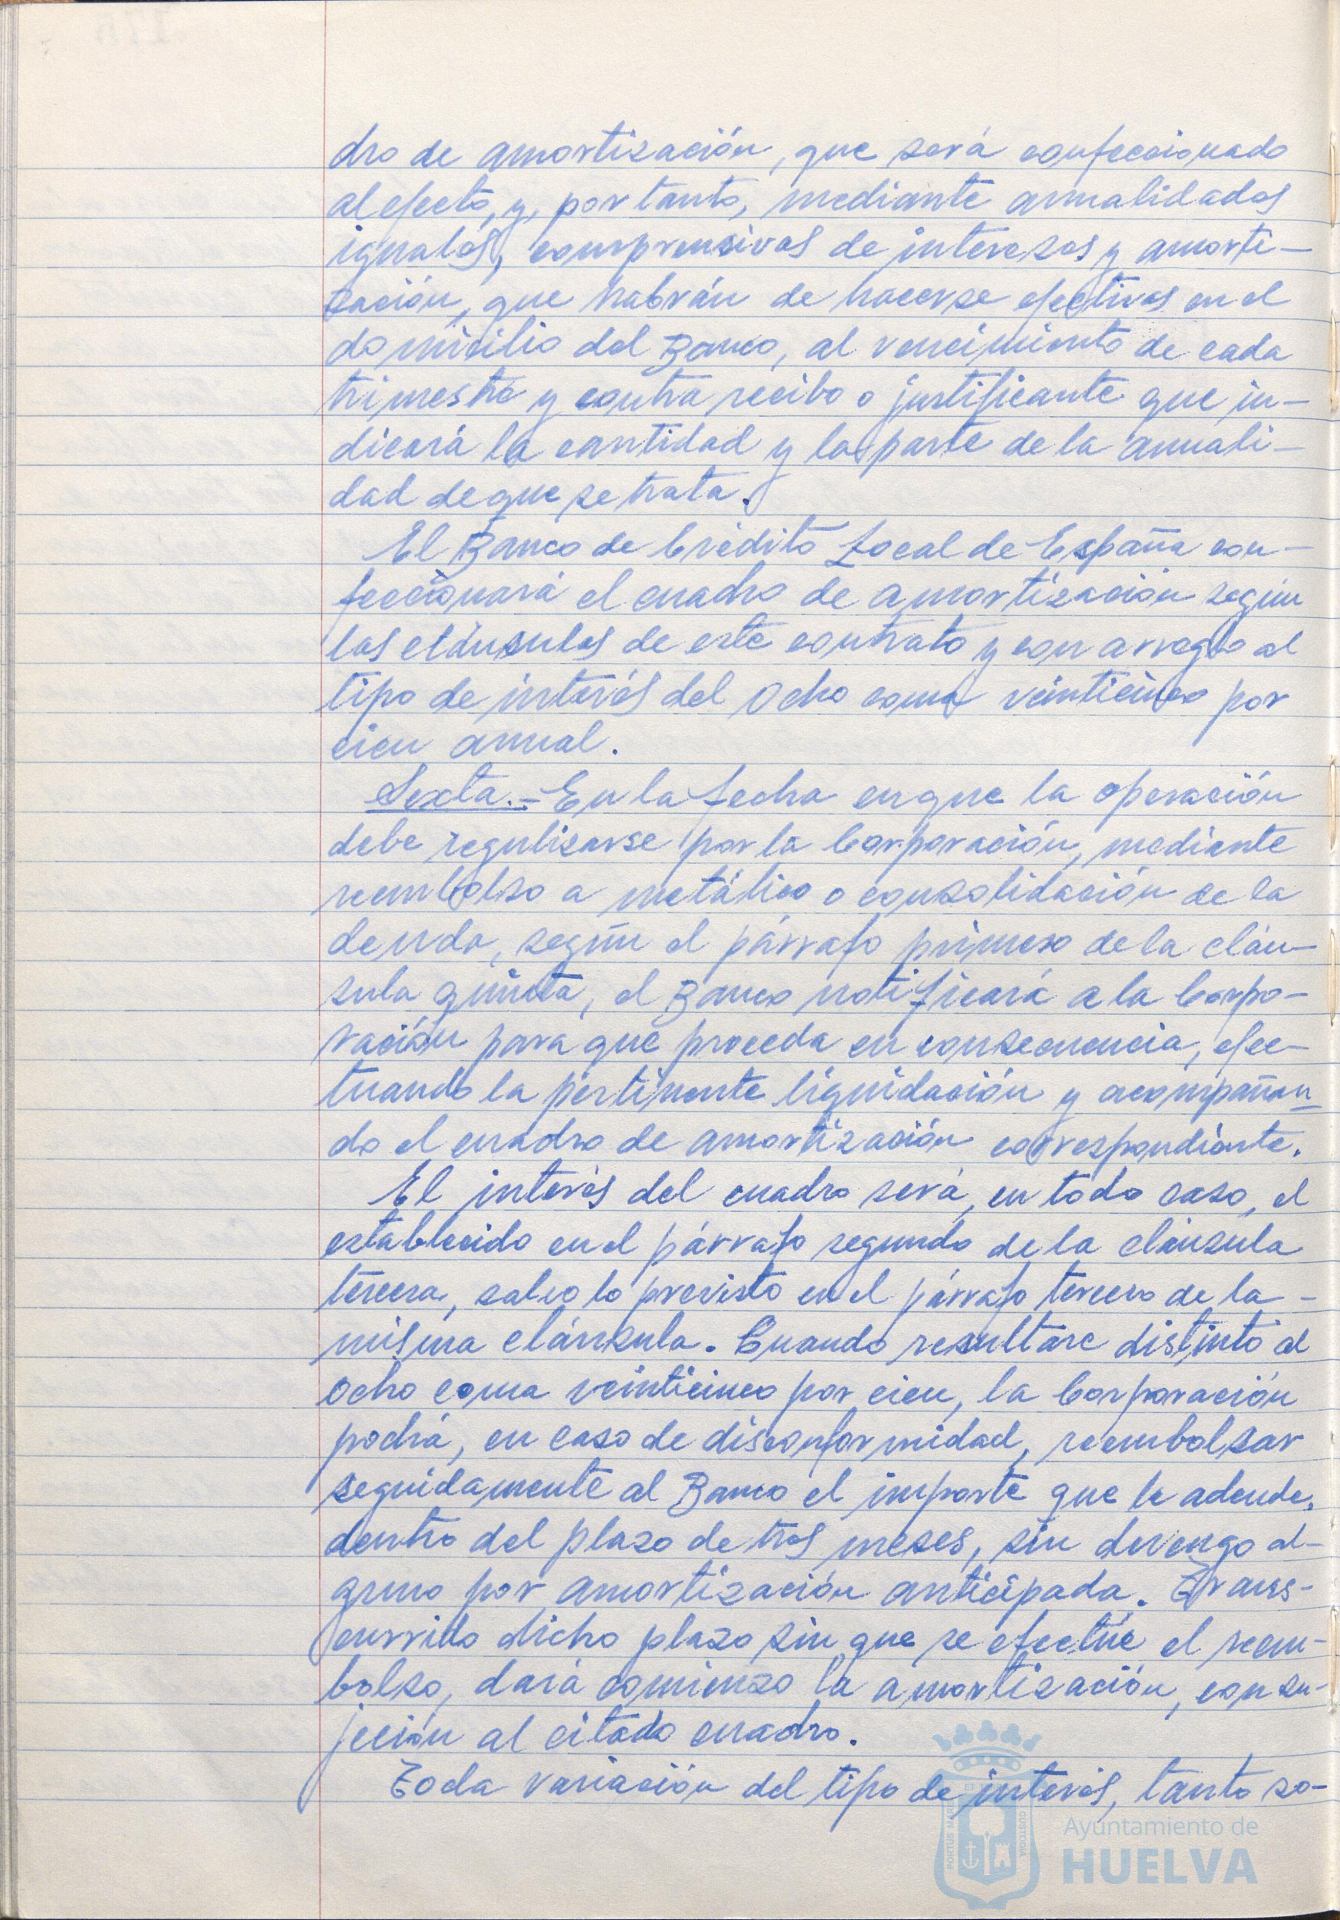 dro de amortización, que será confeccionado
al efecto, y, por tanto, mediante anualidades
iguales, comprensivas de intereses y amorti-
zación, que habrán de hacerse efectivas en el
domicilio del Banco, al vencimiento de cada
trimestre y contra recibo o justificante que in-
dicará la cantidad y la parte de la anuali-
dad de que se trata.
El Banco de Crédito Local de España con-
feccionará el cuadro de amortización según
las cláusulas de este contrato y con arreglo al
tipo de interés del Ocho coma veinticinco por
cien anual.
Sexta.- En la fecha en que la operación
debe regulizarse por la Corporación, mediante
reembolso a metálico o consolidación de la
deuda, según el párrafo primero de la cláu-
sula quinta, el Banco notificará a la Corpo-
ración para que proceda en consecuencia, efec-
tuando la pertinente liquidación y acompañan-
do el cuadro de amortización correspondiente.
El interés del cuadro será, en todo caso, el
establecido en el párrafo segundo de la cláusula
tercera, salvo lo previsto en el párrafo tercero de la -
misma cláusula. Cuando resultare distinto al
ocho coma veinticinco por cien, la Corporación
podrá, en caso de disconformidad, reembolsar
seguidamente al Banco el importe que le adeude,
dentro del plazo de tres meses, sin devengo al-
guno por amortización anticipada. Trans-
currido dicho plazo sin que se efectúe el reem-
bolso, dará comienzo la amortización, con su-
jeción al citado cuadro.
Toda variación del tipo de interés, tanto so-
PORTUS MARIS CUSTODIA
Ayuntamiento de
HUELVA